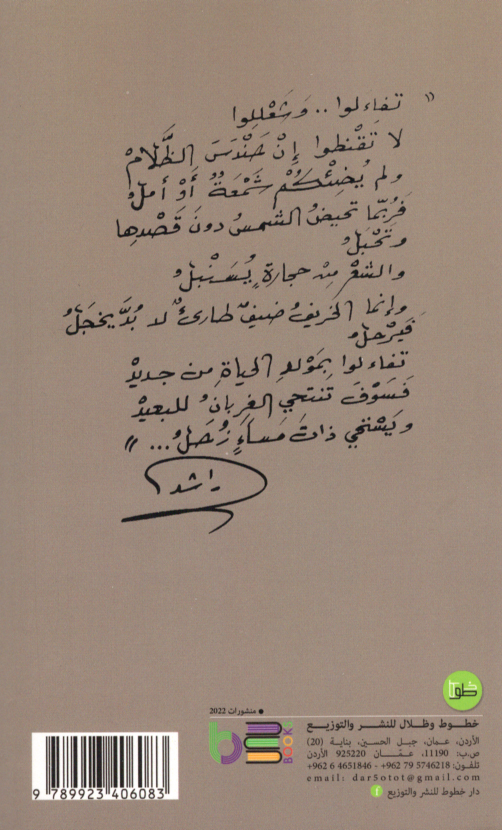 " تفاءلوا .. وَشَعْلِلوا
لا تَقْنطوا إِنْ حَنْدَسَ الظَّلامْ
ولم يُضِئْكُمْ شَمْعَةٌ أَوْ أملُ
فَرُبَّما تحيضُ الشمسُ دونَ قَصْدِها
وتَحْبَلُ
والشعرُ مِنْ حجارةٍ يُسَنْبلُ
وإنما الخريفُ ضيفٌ طارئٌ لا بُدَّ يخجَلُ
فَيرْحلُ
تفاءلوا بِمَوْلدِ الحياةِ مِن جديدْ
فَسَوْفَ تنتحي الغربانُ للبعيدْ
ويَسْتَحي ذاتَ مَساءٍ زُحَلُ ... "
راشد
خطوط
● منشورات 2022
خطوط وظلال للنشر والتوزيع
الأردن، عمان، جبل الحسين، بناية (20)
ص.ب: 11190، عمّان 925220 الأردن
تلفون: 5746218 79 962+ - 4651846 6 962+
email: dar5otot@gmail.com
دار خطوط للنشر والتوزيع f
BOOKS
9 789923 406083